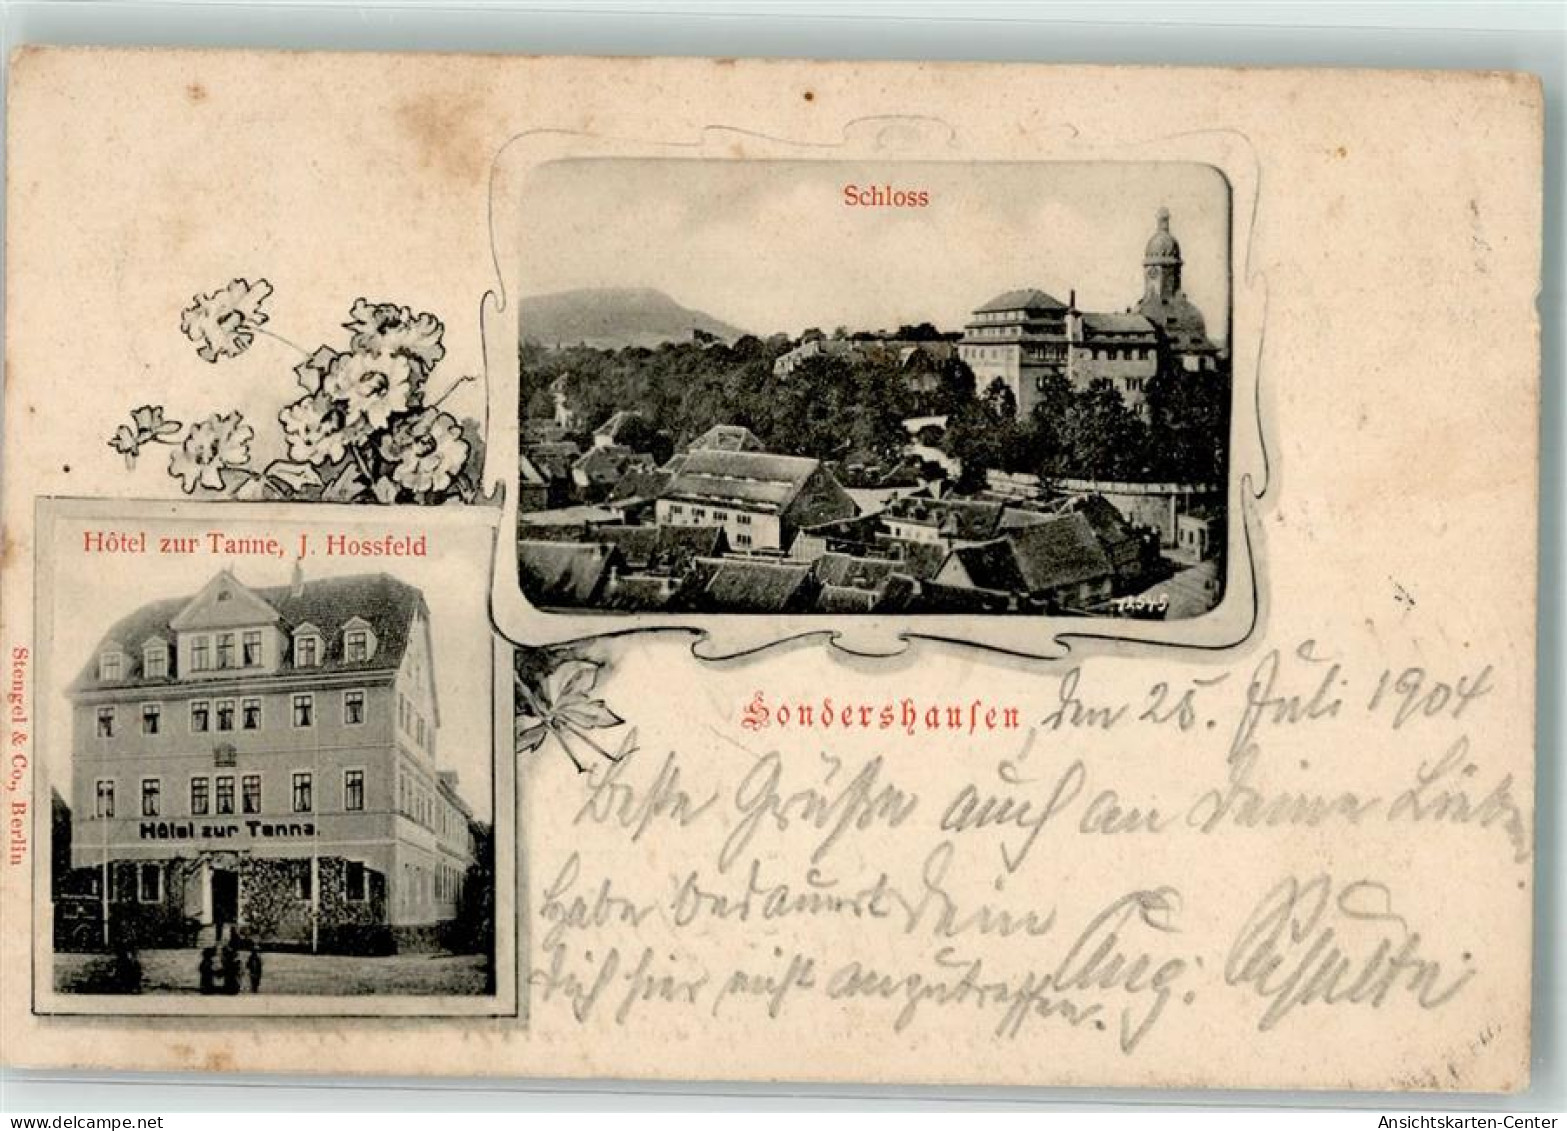 Schloss
Hôtel zur Tanne, J. Hossfeld
Hôtel zur Tanne.
12515
Stengel & Co., Berlin
Sondershausen, den 25. Juli 1904
Beste Grüße auch an Deine Lieben
habe bedauert Dein
Dich hier nicht anzutreffen.
Aug. Schulte
AnsichtsKarten-Center